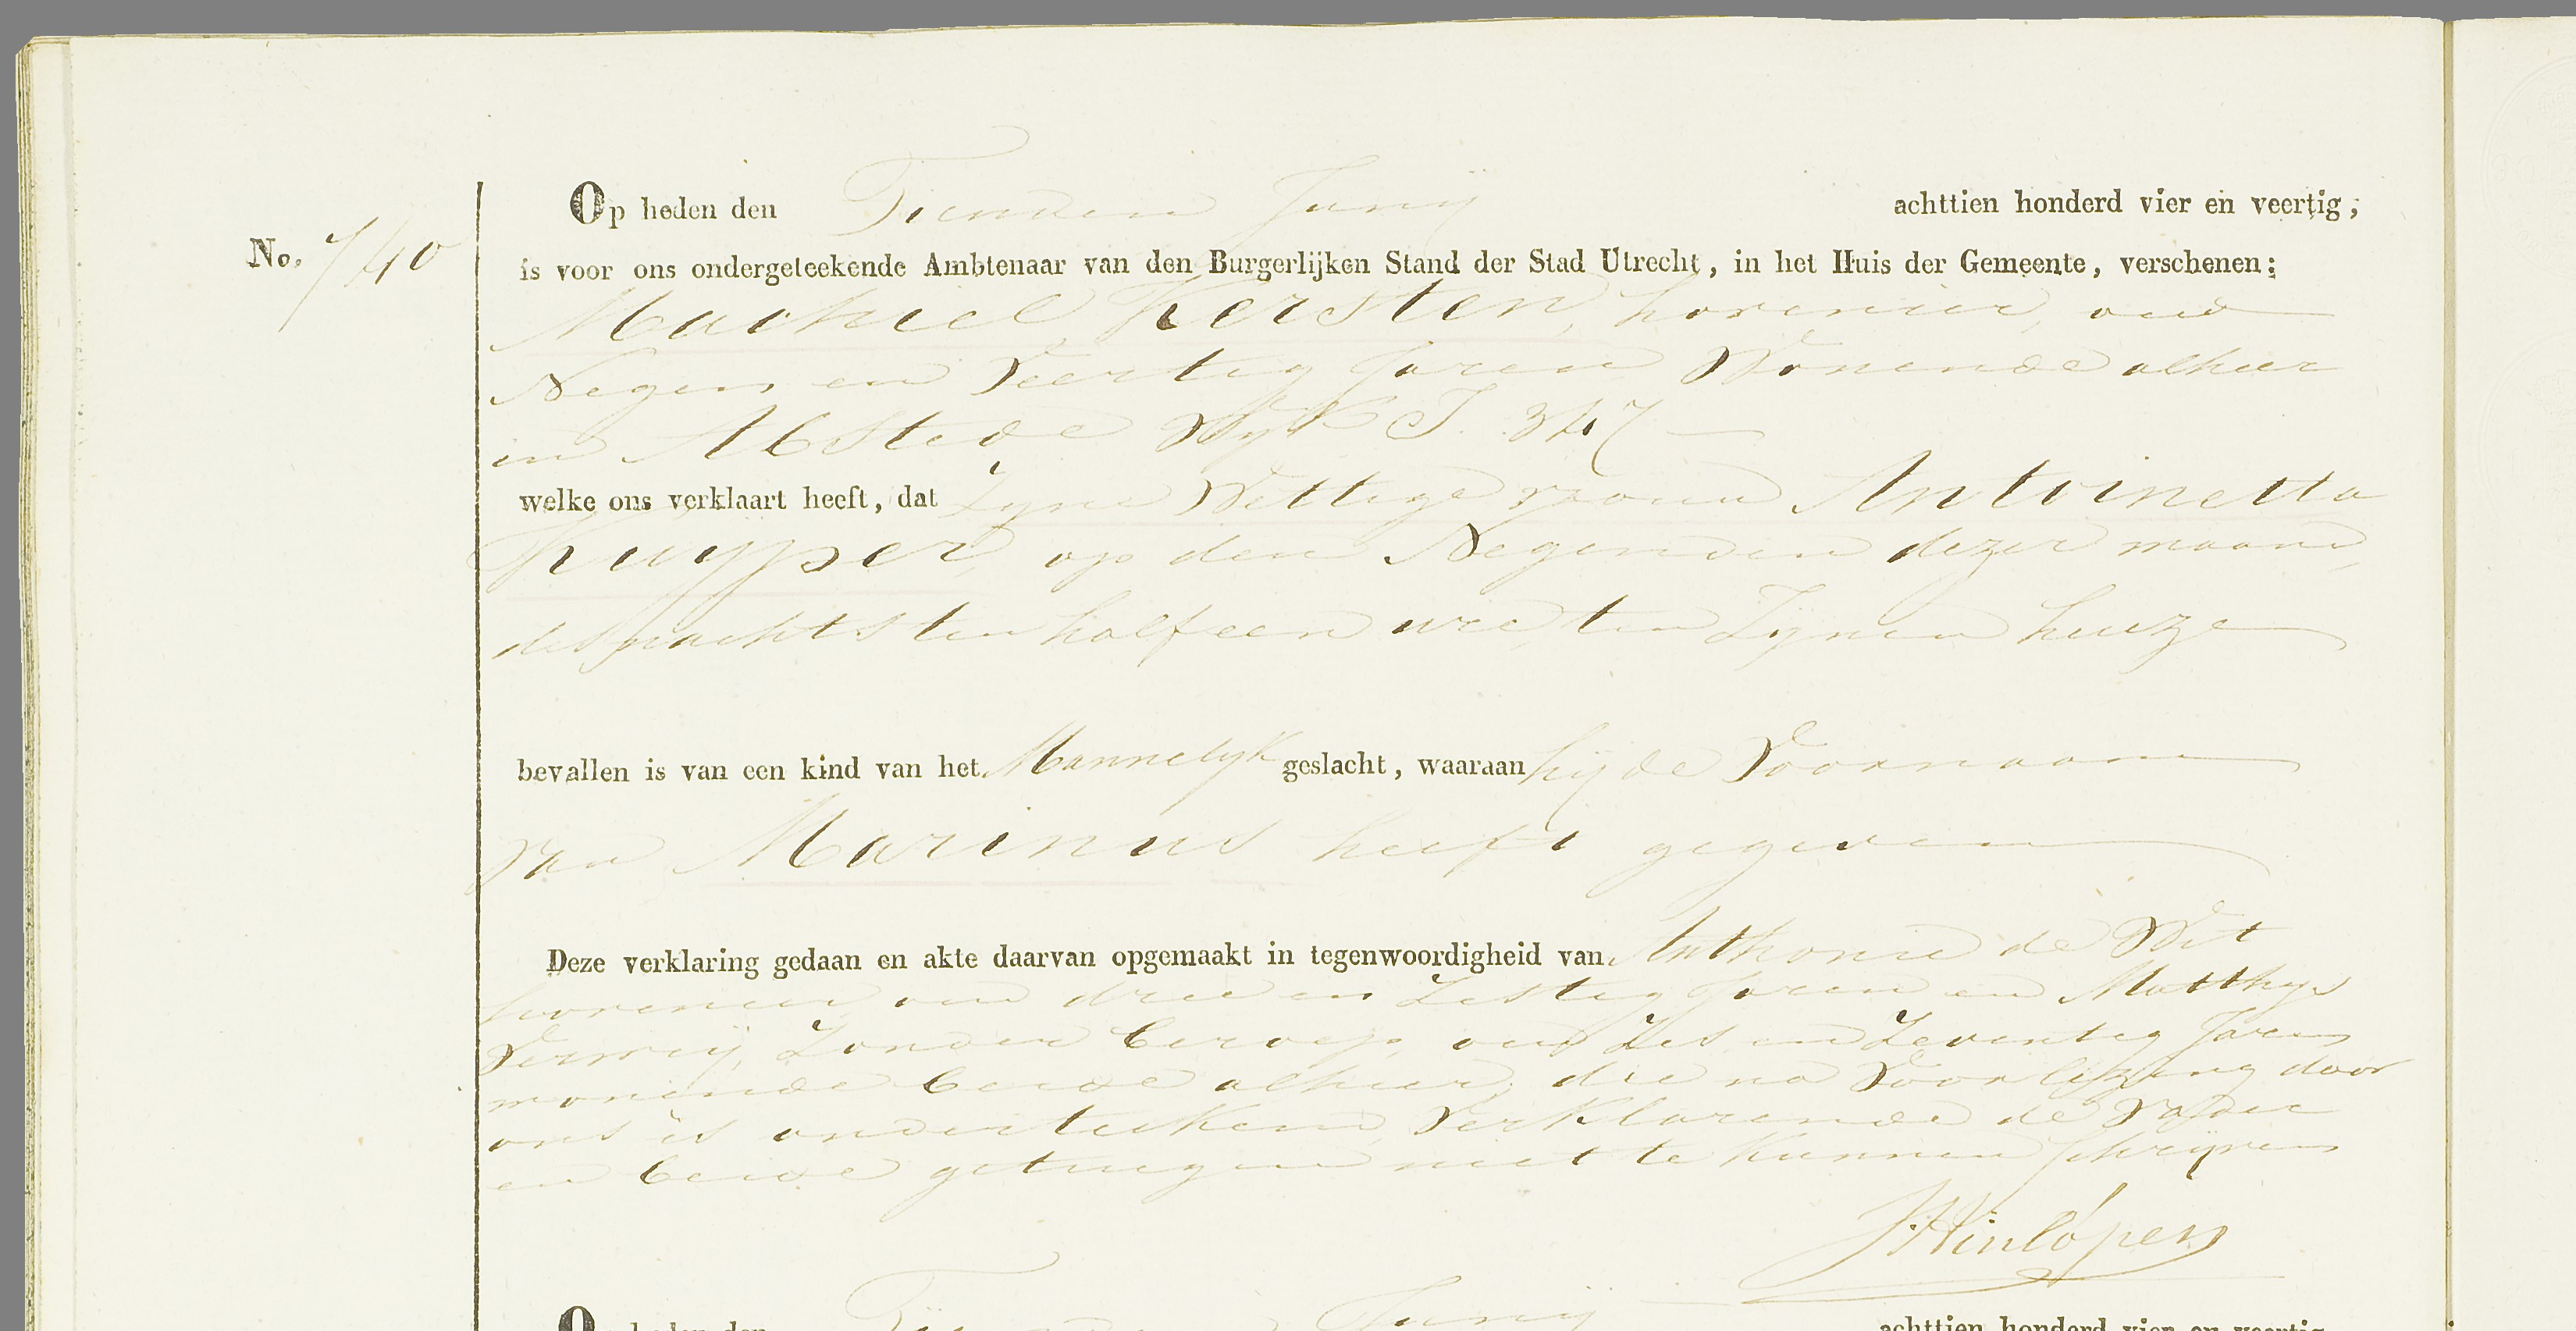 Op heden den Tienden Junij achttien honderd vier en veertig,
No. 740
is voor ons ondergeteekende Ambtenaar van den Burgerlijken Stand der Stad Utrecht, in het Huis der Gemeente, verschenen:
Machiel Kersten, hovenier, oud
Negen en Veertig Jaren Wonende alhier
in Abstede Wijk I. 347
welke ons verklaart heeft, dat Zyne Wettige vrouw Antoinetta
Kuyper, op den Negenden dezer maand,
des nachts ten half een ure, ten Zynen huize
bevallen is van een kind van het Mannelyk geslacht, waaraan hij de Voornaam
van Marinus heeft gegeven
Deze verklaring gedaan en akte daarvan opgemaakt in tegenwoordigheid van Anthonie de Wit
hovenier, oud drie en Zestig Jaren en Matthys
Verweij, Zonder beroep, oud Zes en Zeventig Jaren
wonende beide alhier, die na Voorlezing door
ons is onderteekend, Verklarende de Vader
en beide getuigen niet te kunnen Schrijven
J Hinlópen
Op heden den Junij achttien honderd vier en veertig